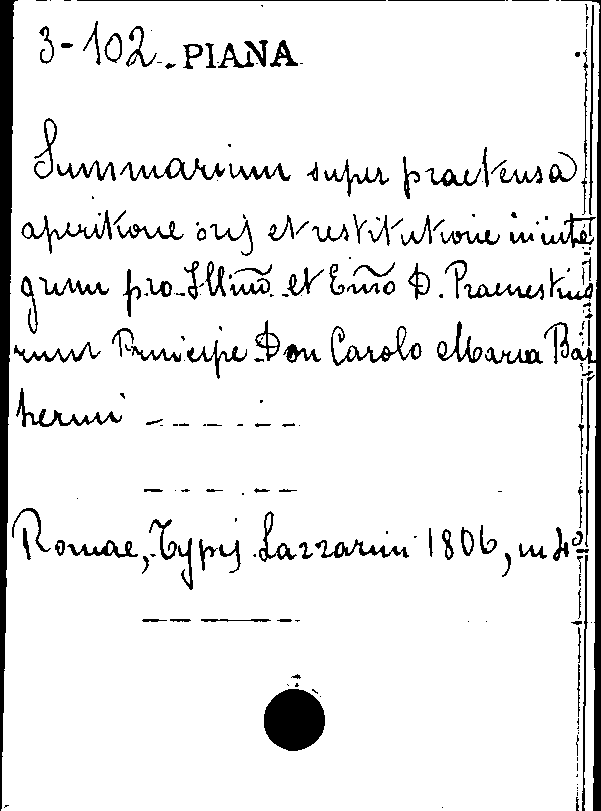 3-102. PIANA
Summarium super praetensa
aperitione oris et restitutione in inte
grum pro Illmo et Emo D. Praenestino
rum Principe Don Carolo Maria Bar
berini
Romae, Typis Lazzarini 1806, in 4º